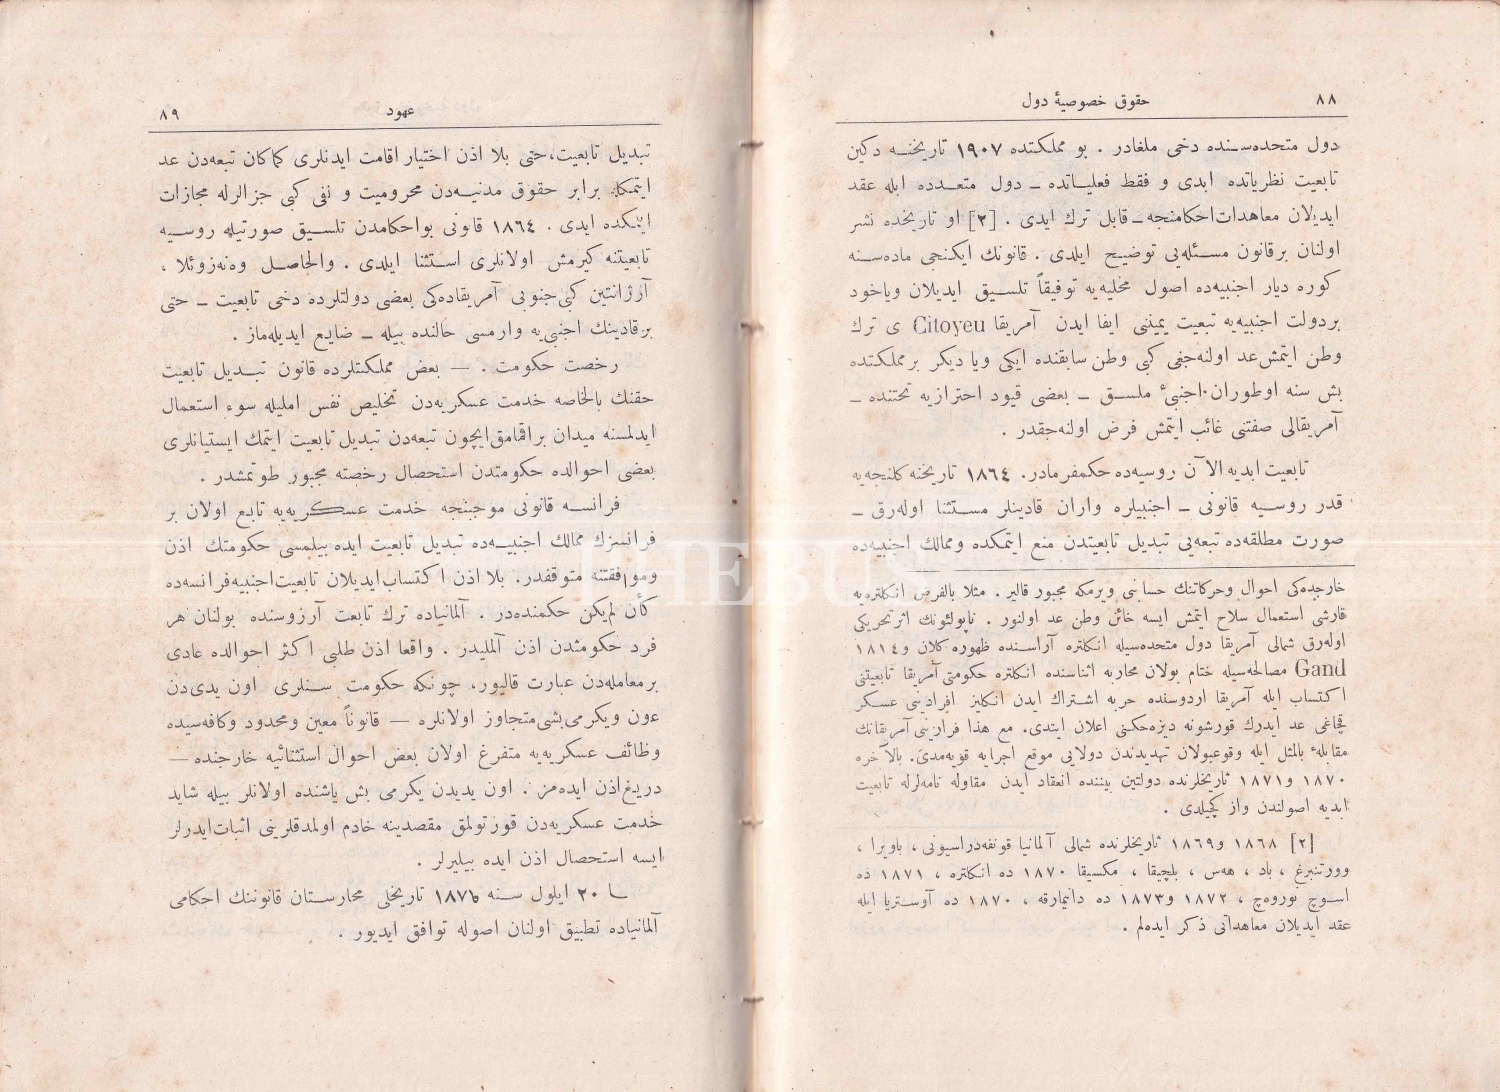 ٨٨
حقوق خصوصیهٔ دول
دول متحده‌سنده دخی ملغادر . بو مملکتده ١٩٠٧ تاریخنه دکین
تابعیت نظریاتده ابدی و فقط فعلیاتده ــ دول متعدده ایله عقد
ایدیلان معاهدات احکامنجه ــ قابل ترك ایدی . [٢] او تاریخده نشر
اولنان برقانون مسئله‌یی توضیح ایلدی . قانونك ایکنجی ماده‌سنه
کوره دیار اجنبیه‌ده اصول محلیه‌یه توفیقاً تلسیق ایدیلان ویاخود
بردولت اجنبیه‌یه تبعیت یمیننی ایفا ایدن آمریقا Citoyeu ی ترك
وطن ایتمش عد اولنه‌جغی کبی وطن سابقنده ایکی ویا دیکر برمملکتده
بش سنه اوطوران اجنبیٔ ملسق ــ بعضی قیود احترازیه تحتنده ــ
آمریقالی صفتنی غائب ایتمش فرض اوله‌جقدر .
تابعیت ابدیه الآن روسیه‌ده حکمفرمادر. ١٨٦٤ تاریخنه کلنجه‌یه
قدر روسیه قانونی ــ اجنبیلره واران قادینلر مستثنا اوله‌رق ــ
صورت مطلقه‌ده تبعه‌یی تبدیل تابعیتدن منع ایتمکده وممالك اجنبیه‌ده
خارجده‌کی احوال وحرکاتنك حسابنی ویرمکه مجبور قالیر . مثلا بالفرض انکلتره‌یه
قارشی استعمال سلاح ایتمش ایسه خائن وطن عد اولنور . ناپولئونك اثر تحریکی
اوله‌رق شمالی آمریقا دول متحده‌سیله انکلتره آراسنده ظهوره کلان و ١٨١٤
Gand مصالحه‌سیله ختام بولان محاربه اثناسنده انکلتره حکومتی آمریقا تابعیتنی
اکتساب ایله آمریقا اردوسنده حربه اشتراك ایدن انکلیز افرادینی عسکر
قچاغی عد ایدرك قورشونه دیزه‌جکنی اعلان ایتدی. مع هذا قرارینی آمریقانك
مقابلهٔ بالمثل ایله وقوعبولان تهدیدندن دولایی موقع اجرایه قویه‌مدی. بالآخره
١٨٧٠ و ١٨٧١ تاریخلرنده دولتین بیننده انعقاد ایدن مقاوله نامه‌لرله تابعیت
ابدیه اصولندن واز کچیلدی .
[٢] ١٨٦٨ و ١٨٦٩ تاریخلرنده شمالی آلمانیا قونفه‌دراسیونی ، باویرا ،
وورتنبرغ ، باد ، هه‌س ، بلچیقا ، مکسیقا ١٨٧٠ ده انکلتره ، ١٨٧١ ده
اسوچ نوروه‌چ ، ١٨٧٢ و ١٨٧٣ ده دانیمارقه ، ١٨٧٠ ده آوستریا ایله
عقد ایدیلان معاهداتی ذکر ایده‌لم .
عهود
٨٩
تبدیل تابعیت، حتی بلا اذن اختیار اقامت ایدنلری کماکان تبعه‌دن عد
ایتمکله برابر حقوق مدنیه‌دن محرومیت و نفی کبی جزالرله مجازات
ایتمکده ایدی . ١٨٦٤ قانونی بواحکامدن تلسیق صورتیله روسیه
تابعیتنه کیرمش اولانلری استثنا ایلدی . والحاصل وه‌نه‌زوئلا ،
آرژانتین کبی جنوبی آمریقاده‌کی بعضی دولتلرده دخی تابعیت ــ حتی
برقادینك اجنبی‌یه وارمسی حالنده بیله ــ ضایع ایدیله‌ماز .
رخصت حکومت . ــ بعض مملکتلرده قانون تبدیل تابعیت
حقنك بالخاصه خدمت عسکریه‌دن تخلیص نفس املیله سوء استعمال
ایدلمسنه میدان براقمامق ایچون تبعه‌دن تبدیل تابعیت ایتمك ایستیانلری
بعضی احوالده حکومتدن استحصال رخصته مجبور طوتمشدر .
فرانسه قانونی موجبنجه خدمت عسکریه‌یه تابع اولان بر
فرانسزك ممالك اجنبیه‌ده تبدیل تابعیت ایده بیلمسی حکومتك اذن
وموافقتنه متوقفدر. بلا اذن اکتساب ایدیلان تابعیت اجنبیه فرانسه‌ده
کان لم‌یکن حکمنده‌در . آلمانیاده ترك تابعت آرزوسنده بولنان هر
فرد حکومتدن اذن آلملیدر . واقعا اذن طلبی اکثر احوالده عادی
برمعامله‌دن عبارت قالیور، چونکه حکومت سنلری اون یدی‌دن
عون ویکرمی‌بشی متجاوز اولانلره ــ قانوناً معین ومحدود وکافه‌سیده
وظائف عسکریه‌یه متفرغ اولان بعض احوال استثنائیه خارجنده ــ
دریغ اذن ایده‌مز . اون یدیدن یکرمی بش یاشنده اولانلر بیله شاید
خدمت عسکریه‌دن قورتولمق مقصدینه خادم اولمدقلرینی اثبات ایدرلر
ایسه استحصال اذن ایده بیلیرلر .
ــ ٢٠ ایلول سنه ١٨٧٦ تاریخلی مجارستان قانوننك احکامی
آلمانیاده تطبیق اولنان اصوله توافق ایدیور .